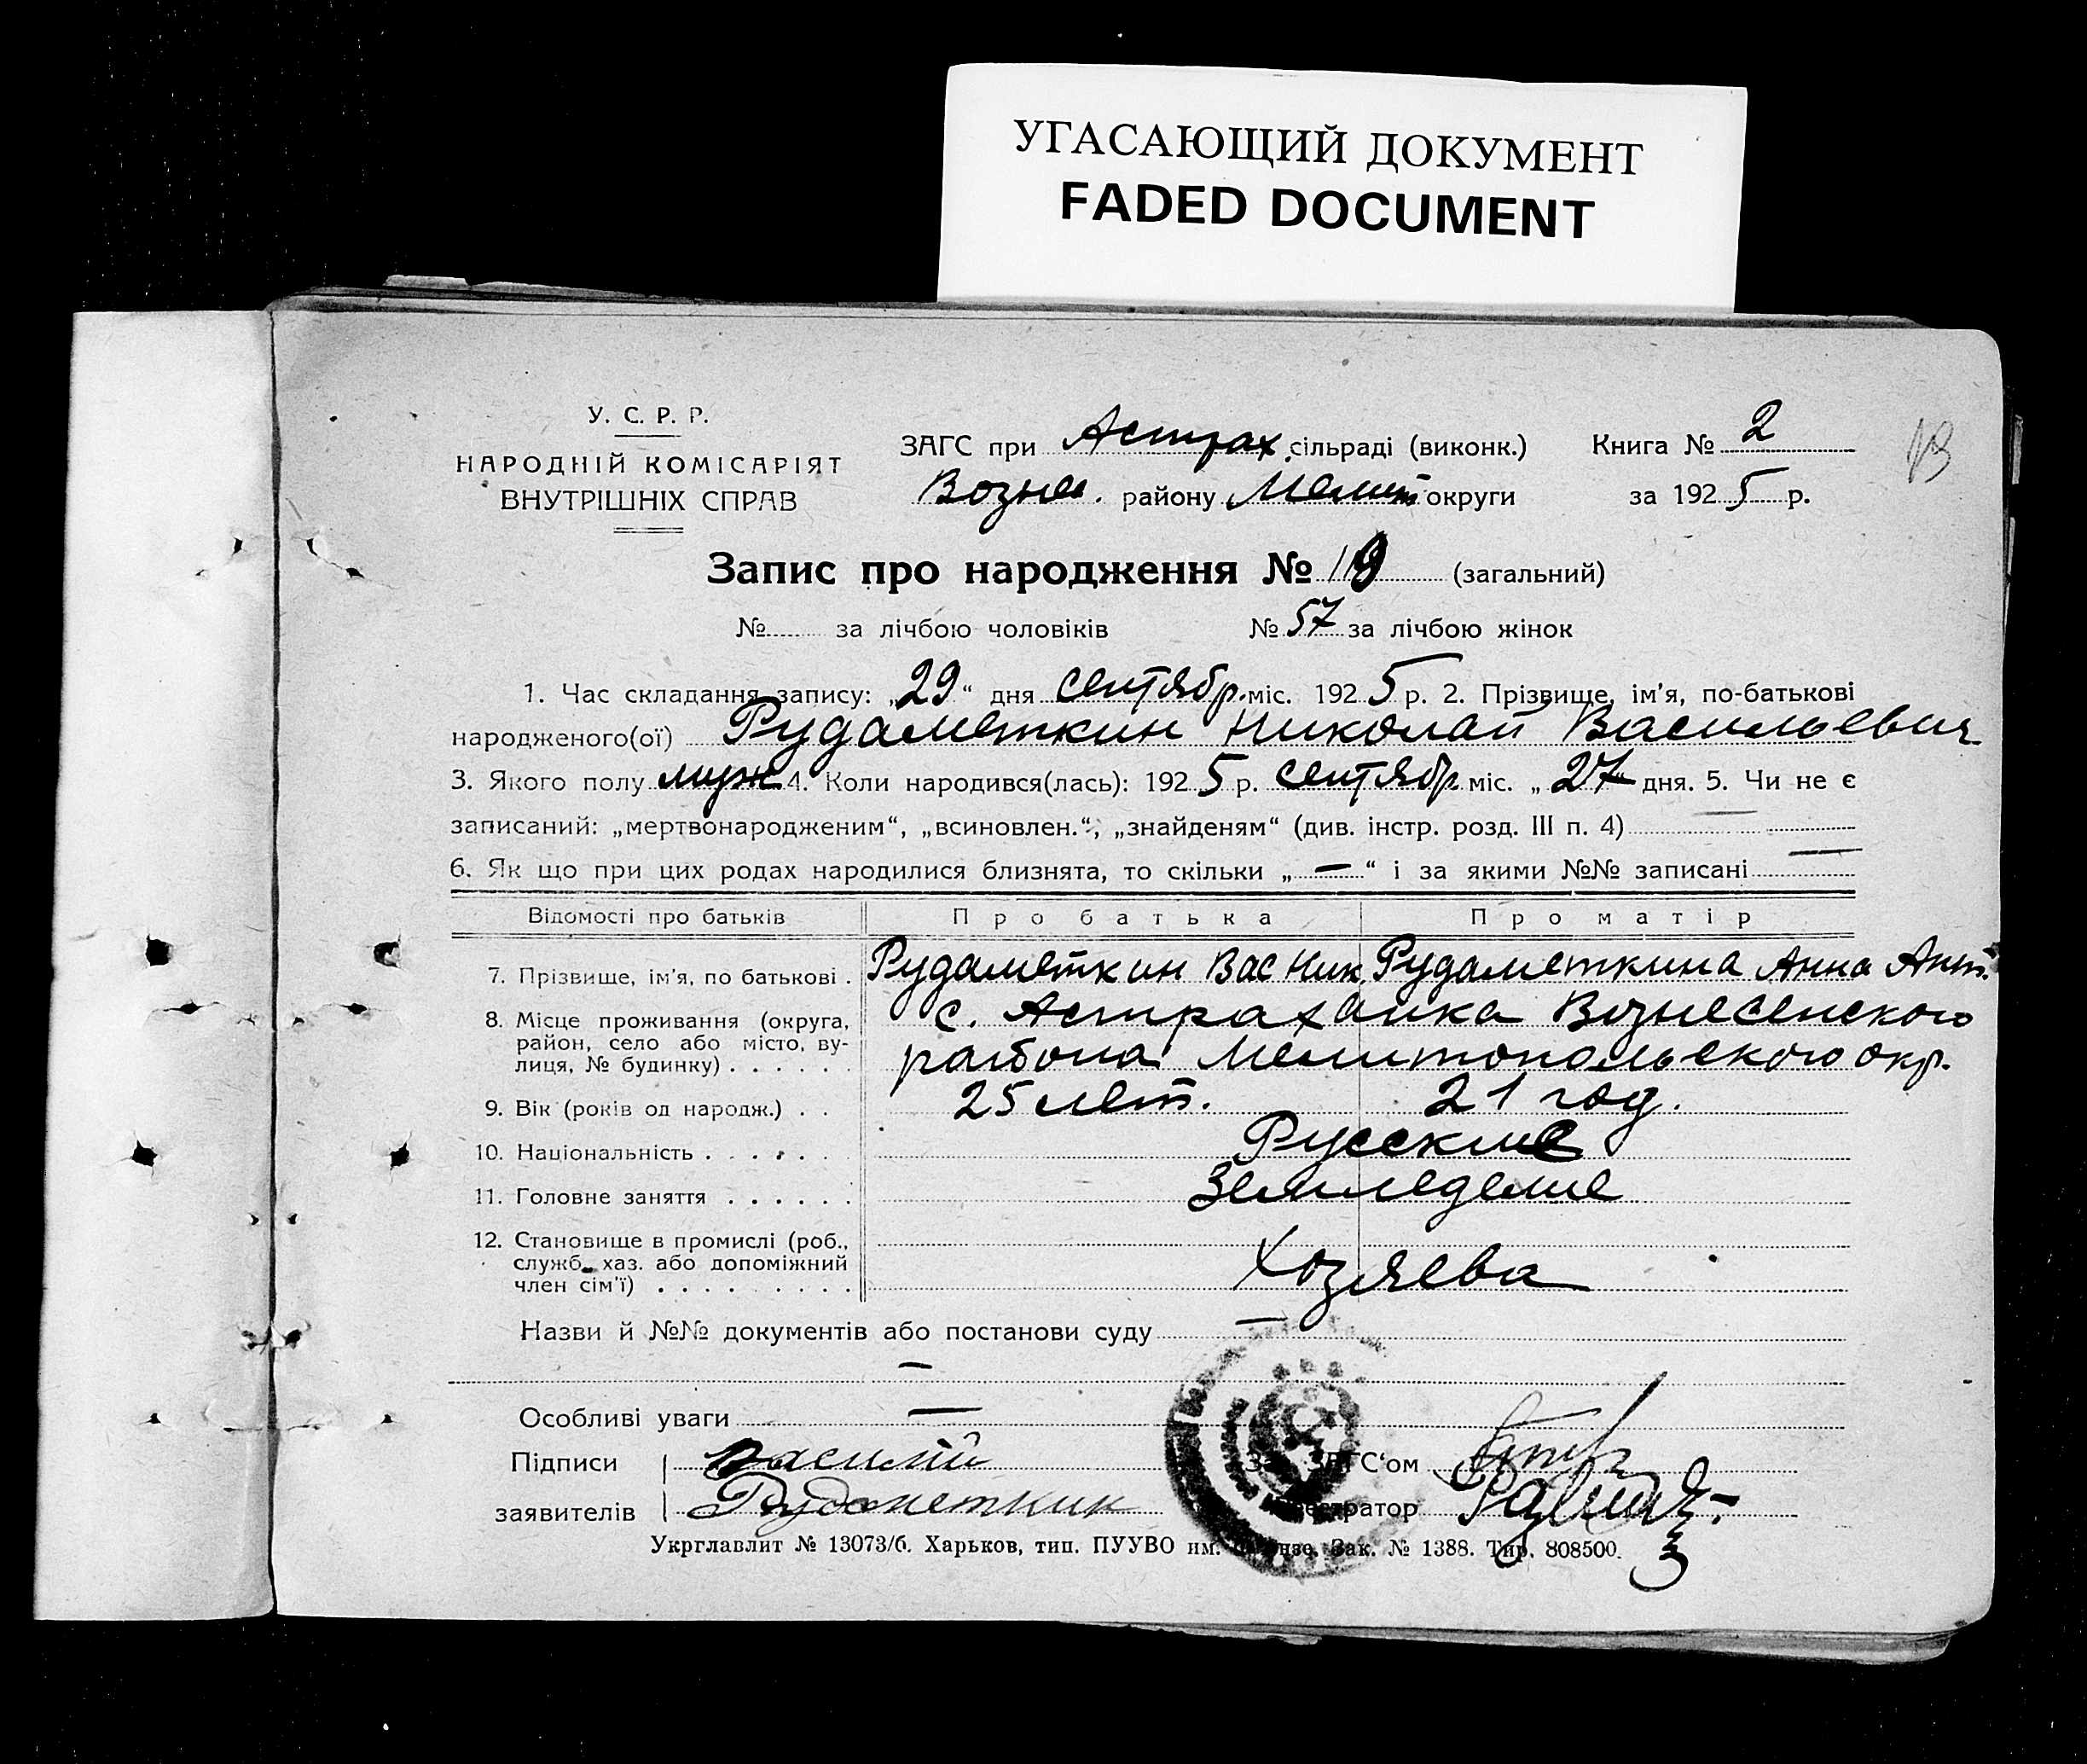 УГАСАЮЩИЙ ДОКУМЕНТ
FADED DOCUMENT
У. С. Р. Р.
НАРОДНІЙ КОМІСАРІЯТ
ВНУТРІШНІХ СПРАВ
ЗАГС при Астрах. сільраді (виконк.) Книга № 2
Вознес. району Мелит округи за 1925 р.
13
Запис про народження № 119 (загальний)
№ за лічбою чоловіків № 57 за лічбою жінок
1. Час складання запису: „29“ дня сентябр. міс. 1925 р. 2. Прізвище, ім'я, по-батькові
народженого(ої) Рудаметкин Николай Васильевич
3. Якого полу муж 4. Коли народився(лась): 1925 р. сентябр міс. „27“ дня. 5. Чи не є
записаний: „мертвонародженим“, „всиновлен.“, „знайденям“ (див. інстр. розд. III п. 4) —
6. Як що при цих родах народилися близнята, то скільки „—“ і за якими №№ записані —
Відомості про батьків Про батька Про матір
7. Прізвище, ім'я, по батькові . Рудаметкин Вас Ник. Рудаметкина Анна Ант.
8. Місце проживання (округа, с. Астраханка Вознесенского
район, село або місто, ву-
лиця, № будинку) . . . . . . района Мелитопольского окр.
9. Вік (років од народж.) . . 25 лет. 21 год.
10. Національність . . . . . . Русские
11. Головне заняття . . . . . . Земледелие
12. Становище в промислі (роб.,
служб., хаз. або допоміжний
член сім'ї) . . . . . . . . . Хозяева
Назви й №№ документів або постанови суду —
—
Особливі уваги —
Підписи Василий Зав. ЗАГС‘ом
заявителів Рудометкин Реєстратор
Укрглавлит № 13073/б. Харьков, тип. ПУУВО им. Фрунзе. Зак. № 1388. Тир. 808500.